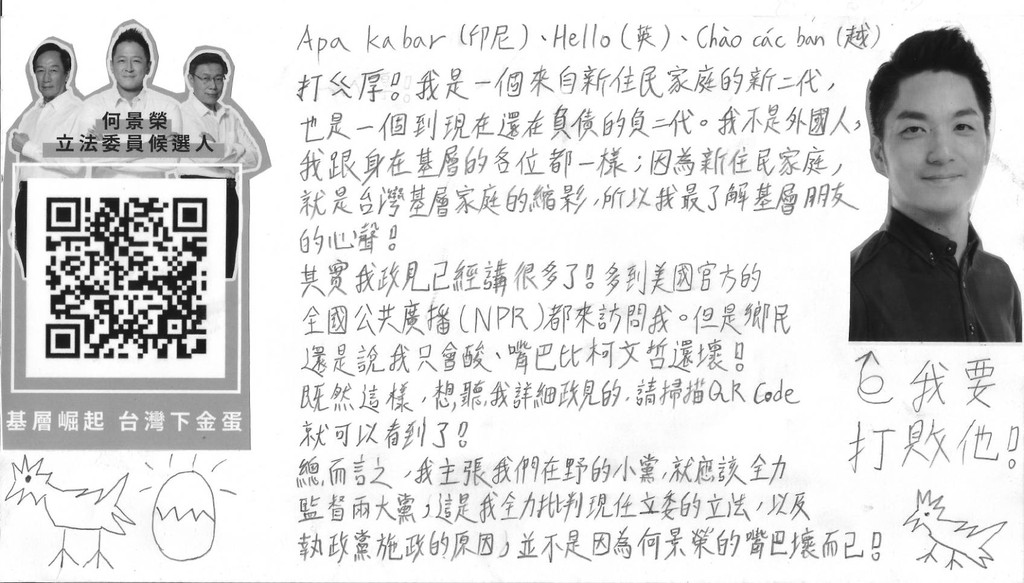 何景榮
立法委員候選人
基層崛起 台灣下金蛋
Apa kabar (印尼)、Hello (英)、Chào các bạn (越)
打ㄍ厚!我是一個來自新住民家庭的新二代,
也是一個到現在還在負債的負二代。我不是外國人,
我跟身在基層的各位都一樣;因為新住民家庭,
就是台灣基層家庭的縮影,所以我最了解基層朋友
的心聲!
其實我政見已經講很多了!多到美國官方的
全國公共廣播(NPR)都來訪問我。但是鄉民
還是說我只會酸、嘴巴比柯文哲還壞!
既然這樣,想聽我詳細政見的,請掃描QR Code
就可以看到了!
總而言之,我主張我們在野的小黨,就應該全力
監督兩大黨,這是我全力批判現任立委的立法,以及
執政黨施政的原因,並不是因為何景榮的嘴巴壞而已!
我要
打敗他!